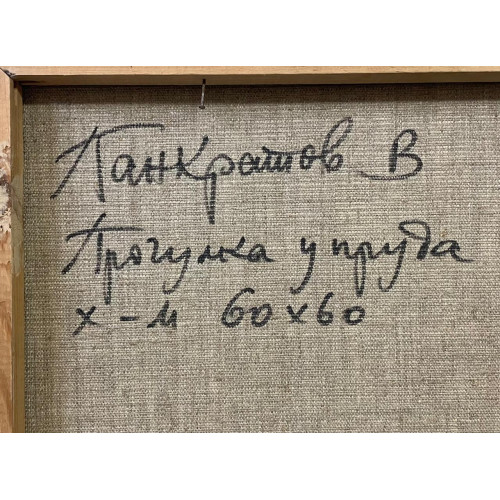 Панкратов В
Прогулка у пруда
х-м 60х60